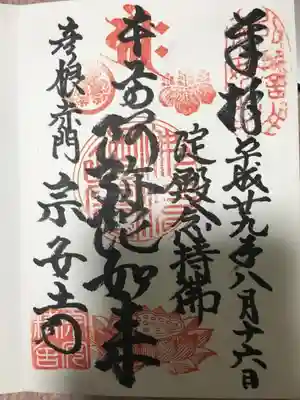 奉拝 平成廿九年八月十六日
淀殿念持佛
本尊 阿弥陀如来
彦根赤門 宗安寺